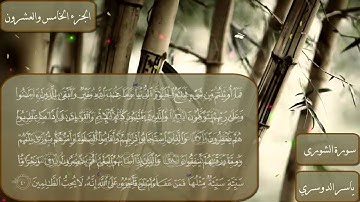 الجزء الخامس والعشرون
فَمَآ أُوتِيتُم مِّن شَىْءٍ فَمَتَٰعُ ٱلْحَيَوٰةِ ٱلدُّنْيَا وَمَا عِندَ ٱللَّهِ خَيْرٌ وَأَبْقَىٰ لِلَّذِينَ ءَامَنُوا۟
وَعَلَىٰ رَبِّهِمْ يَتَوَكَّلُونَ ٣٦ وَٱلَّذِينَ يَجْتَنِبُونَ كَبَٰٓئِرَ ٱلْإِثْمِ وَٱلْفَوَٰحِشَ وَإِذَا مَا غَضِبُوا۟
هُمْ يَغْفِرُونَ ٣٧ وَٱلَّذِينَ ٱسْتَجَابُوا۟ لِرَبِّهِمْ وَأَقَامُوا۟ ٱلصَّلَوٰةَ وَأَمْرُهُمْ شُورَىٰ بَيْنَهُمْ
وَمِمَّا رَزَقْنَٰهُمْ يُنفِقُونَ ٣٨ وَٱلَّذِينَ إِذَآ أَصَابَهُمُ ٱلْبَغْىُ هُمْ يَنتَصِرُونَ ٣٩ وَجَزَٰٓؤُا۟
سَيِّئَةٍ سَيِّئَةٌ مِّثْلُهَا فَمَنْ عَفَا وَأَصْلَحَ فَأَجْرُهُۥ عَلَى ٱللَّهِ إِنَّهُۥ لَا يُحِبُّ ٱلظَّٰلِمِينَ ٤٠
سورة الشورى
ياسر الدوسري